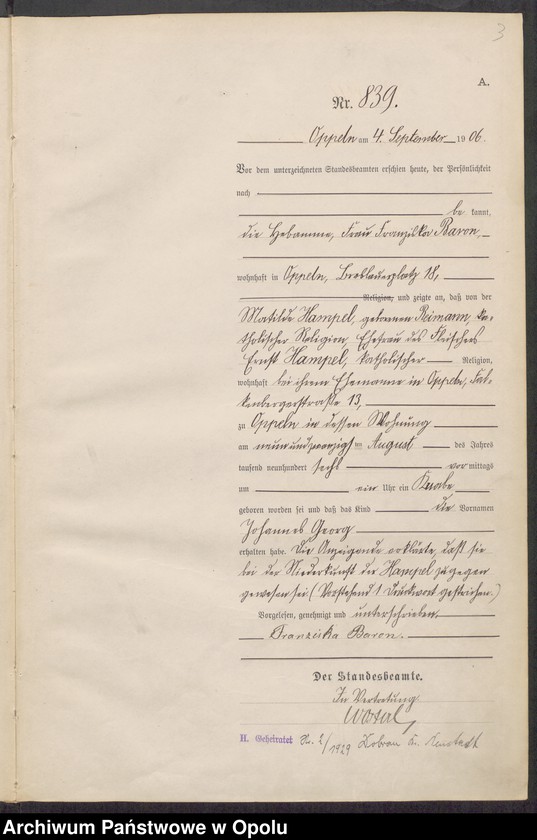 3
A.
Nr. 839.
Oppeln am 4. September 1906.
Vor dem unterzeichneten Standesbeamten erschien heute, der Persönlichkeit
nach
be kannt,
die Hebamme, Frau Franziska Baron,
wohnhaft in Oppeln, Breslauerplatz 18,
Religion, und zeigte an, daß von der
Matilde Hampel, geborenen Reimann, ka-
tholischer Religion, Ehefrau des Fleischers
Ernst Hampel, katholischer Religion,
wohnhaft bei ihrem Ehemanne in Oppeln, Fal-
kenbergerstraße 13,
zu Oppeln in dessen Wohnung
am neunundzwanzigsten August des Jahres
tausend neunhundert sechs vormittags
um ein Uhr ein Knabe
geboren worden sei und daß das Kind die Vornamen
Johannes Georg
erhalten habe. Die Anzeigende erklärte, daß sie
bei der Niederkunft der Hampel zugegen
gewesen sei (Vorstehend 1 Druckwort gestrichen.)
Vorgelesen, genehmigt und unterschrieben.
Franziska Baron.
Der Standesbeamte.
In Vertretung
H. Geheiratet Nr. 2/1929 K. Neustadt
Archiwum Państwowe w Opolu